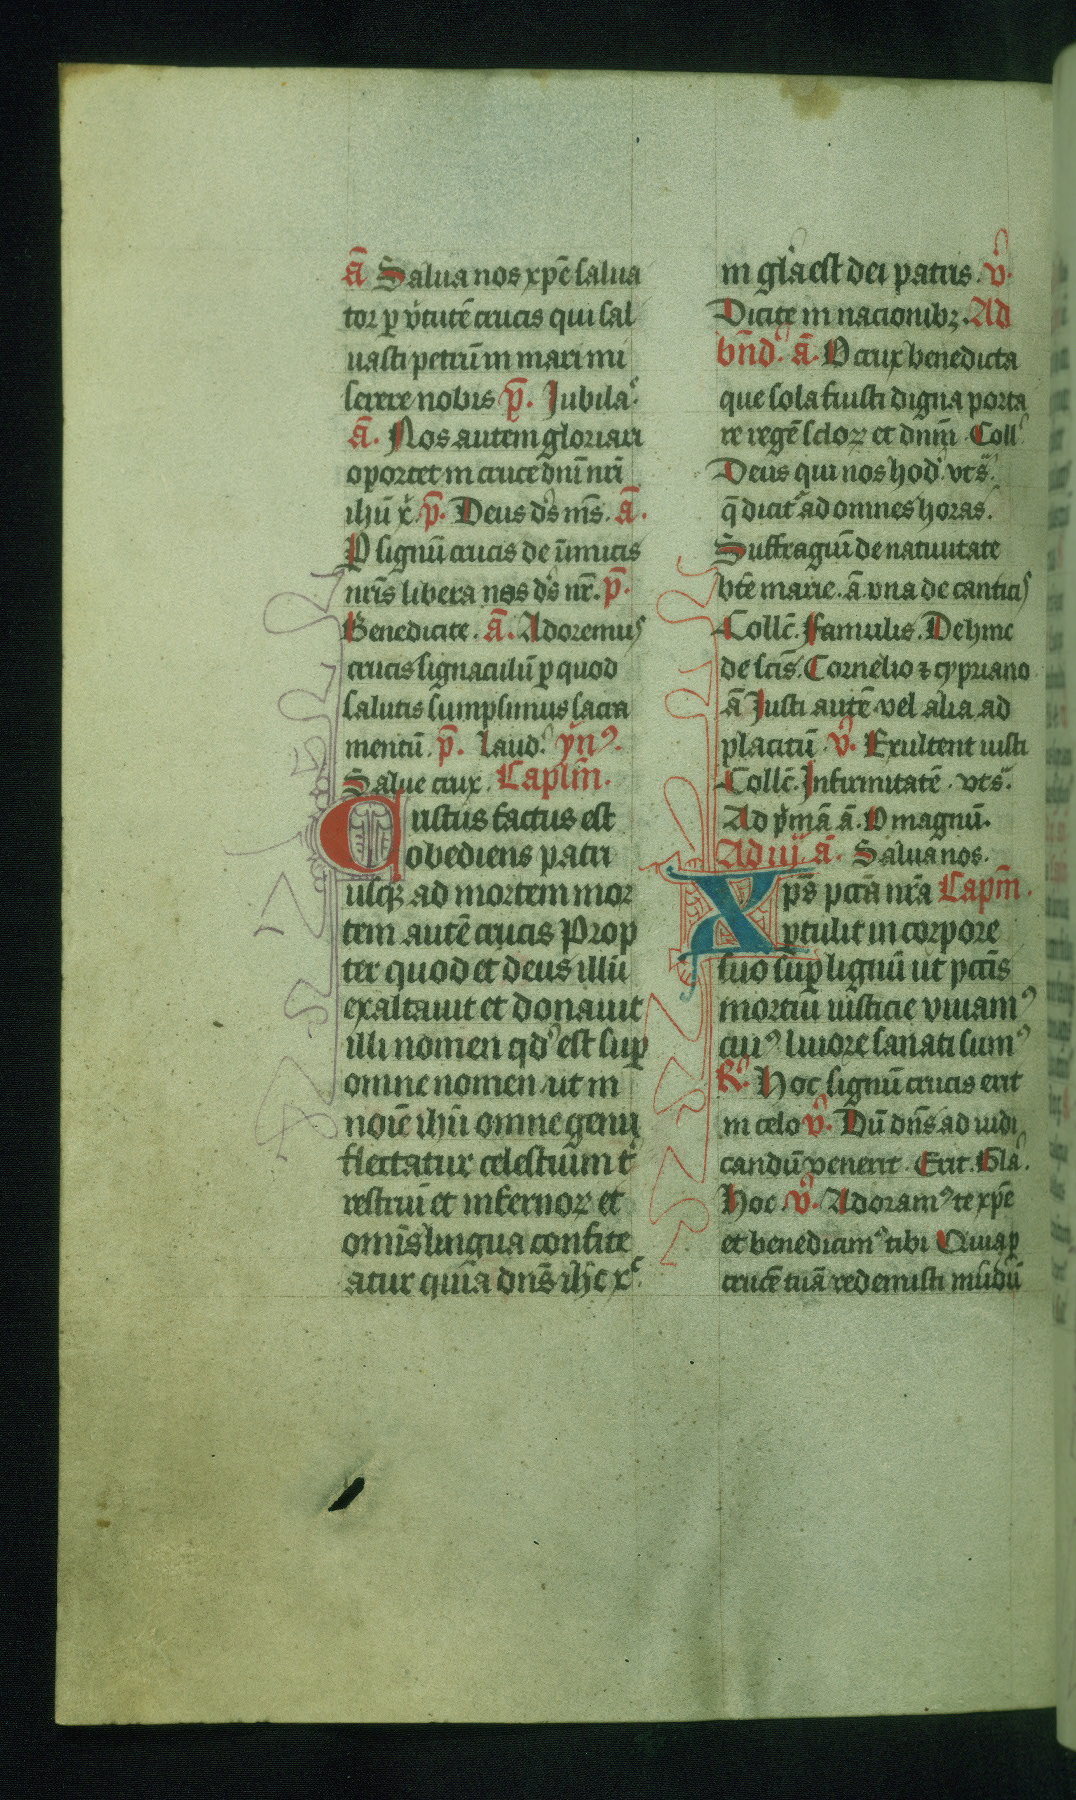 a̅ Salua nos xpe̅ salua
tor p̲ v̾tute̅ crucis qui sal
uasti petru̅ in mari mi
serere nobis p̅. Jubila᷑
a̅. Nos autem gloriari
oportet in cruce dn̅i nr̅i
ihu̅ x̾. p̅. Deus ds̾ ms̅. a̅.
P signu̅ crucis de inimicis
nr̅is libera nos ds̾ nr̅. p̅.
Benedicite. a̅. Adoremus
crucis signaculu̅ p̲ quod
salutis sumpsimus sacra
mentu̅. p̅. Laud᷑. ymꝰ.
Salue crux. Caplm̅.
Cristus factus est
obediens patri
usq̲ ad mortem mor
tem aute̅ crucis Prop
ter quod et deus illu̅
exaltauit et donauit
illi nomen qdꝰ est sup̲
omne nomen ut in
noi̅e ihu̅ omne genu
flectatur celestiu̅m t᷑
restriu̅ et infernoꝝ et
omi̅s lingua confite
atur quia dn̅s ih̅c xc̾
in gl̾a est dei patris. v̾.
Dicite in nacionibꝫ. Ad
bn̅d᷑. a̅. O crux benedicta
que sola fuisti digna porta
re rege̅ scloꝝ et dnm̅. Coll᷑
Deus qui nos hod᷑. vts̾.
q̅ dicit᷑ ad omnes horas.
Suffragiu̅ de natiuitate
bt̅e marie. a̅ vna de canticis
Collc̅. Famulis. Dehinc
de scis̅. Cornelio ⁊ cypriano
a̅ Justi aute̅ vel alia ad
placitu̅. v̾. Exultent iusti
Collc̅. Infirmitate̅. vts̾.
Ad p̾ma̅ a̅. O magnu̅.
Ad iij a̅. Saluanos.
Xps̅ pcc̅a nr̅a Capm̅.
p̲tulit in corpore
suo sup̲ lignu̅ ut pcc̅is
mortui iusticie viuamꝰ
cuiꝰ liuore sanati sumꝰ
R᷑. Hoc signu̅ crucis erit
in celo v̾. Du̅ dn̅s ad iudi
candu̅ venerit. Erit. Gl̾a.
Hoc. v̾. Adoramꝰ te xpe̅
et benedicimꝰ tibi Quia p̲
cruce̅ tua̅ redemisti mu̅du̅